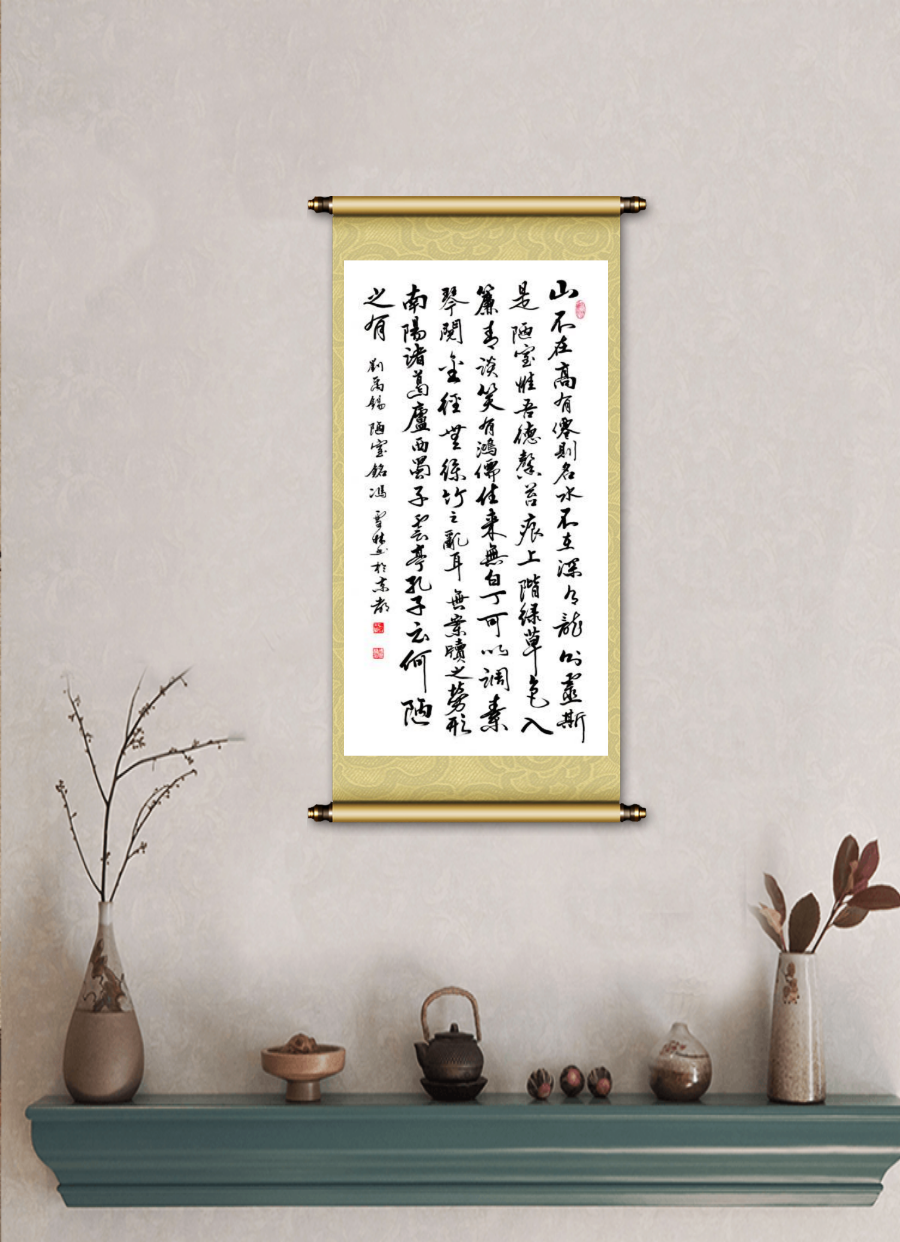 山不在高有僊則名水不在深有龍則靈斯
是陋室惟吾德馨苔痕上階緑草色入
簾青談笑有鴻儒往来無白丁可以調素
琴閱金徑無絲竹之亂耳無案牘之勞形
南陽諸葛廬西蜀子雲亭孔子云何陋
之有
劉禹錫陋室銘馮書於京都